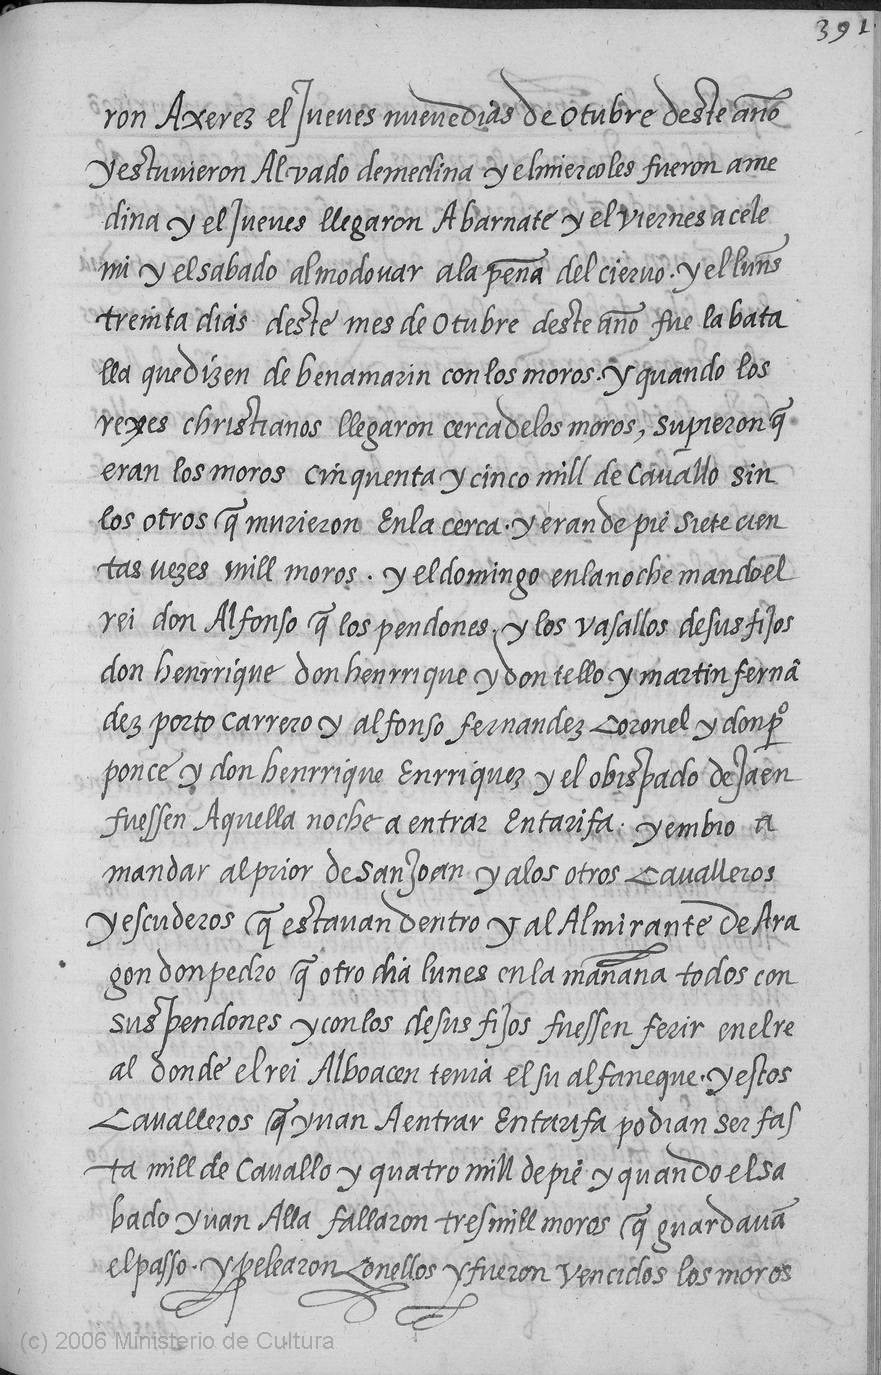 391.
ron Axerez el Jueves nuevedias de Otubre deste año
y estuuieron Alvado demedina y elmiercoles fueron ame
dina y el Jueves llegaron Abarnate y el viernes a cele
mi y elsabado almodouar ala pena del cieruo. y el luns
treinta dias deste mes de Otubre deste año fue la bata
lla que dizen de benamarin con los moros. y quando los
reyes christianos llegaron cercadelos moros, supieron q̃
eran los moros cinquenta y cinco mill de Cauallo sin
los otros q̃ murieron Enla cerca. y eran de pie siete cien
tas vezes mill moros. y eldomingo enlanoche mandoel
rei don Alfonso q̃ los pendones, y los vasallos desus fijos
don henrrique don henrrique y don tello y martin fernã
dez porto carrero y alfonso fernandez Coronel y don pº
ponce y don henrrique Enrriquez y el obispado de Jaen
fuessen Aquella noche a entrar Entarifa. y embio a
mandar al prior de san Joan y alos otros Caualleros
y escuderos q̃ estauan dentro y al Almirante De Ara
gon don pedro q̃ otro dia lunes enla mañana todos con
sus pendones y con los desus fijos fuessen ferir enel re
al donde el rei Alboacen tenia el su alfaneque. y estos
Caualleros q̃ yuan A entrar Entarifa podian ser fas
ta mill de Cauallo y quatro mill depie y quando el sa
bado yuan Alla fallaron tres mill moros q̃ guardauã
elpasso. y pelearon Conellos y fueron Vencidos los moros
(c) 2006 Ministerio de Cultura